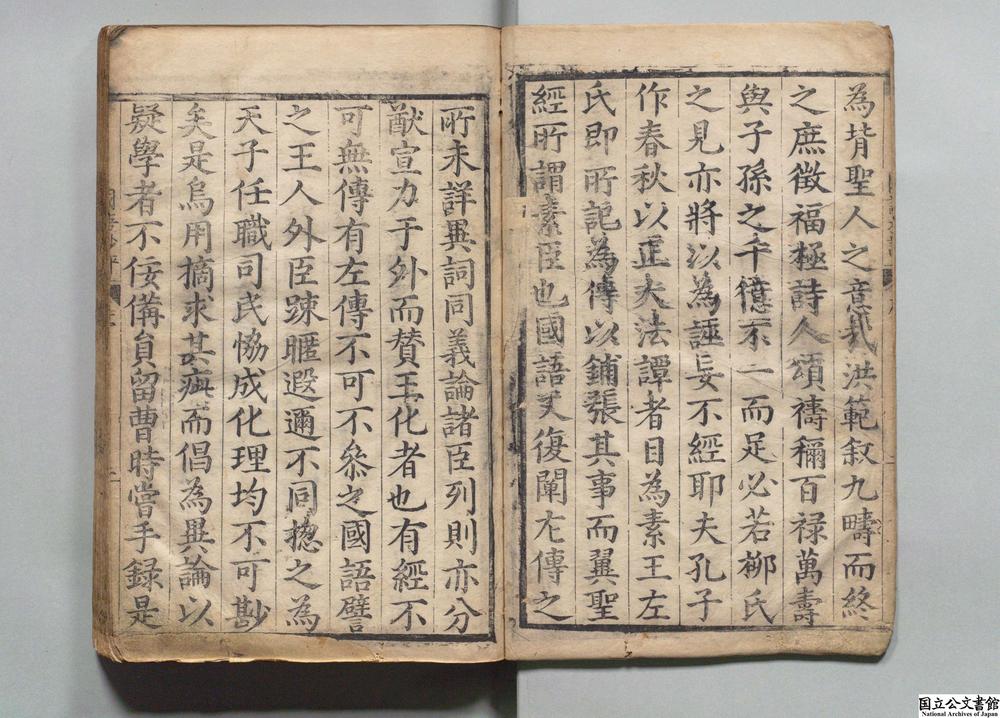 為背聖人之意哉洪範叙九疇而終
之庶徵福極詩人頌禱稱百禄萬壽
與子孫之千億不一而足必若柳氏
之見亦將以為誣妄不經耶夫孔子
作春秋以正大法譚者目為素王左
氏即所記為傳以鋪張其事而翼聖
經所謂素臣也國語又復闡左傳之
所未詳異詞同義論諸臣列則亦分
猷宣力于外而賛王化者也有經不
可無傳有左傳不可不叅之國語譬
之王人外臣踈暱遐邇不同揔之為
天子任職司民恊成化理均不可尠
矣是烏用摘求其疵而倡為異論以
疑學者不佞備員留曹時嘗手録是
国立公文書館
National Archives of Japan